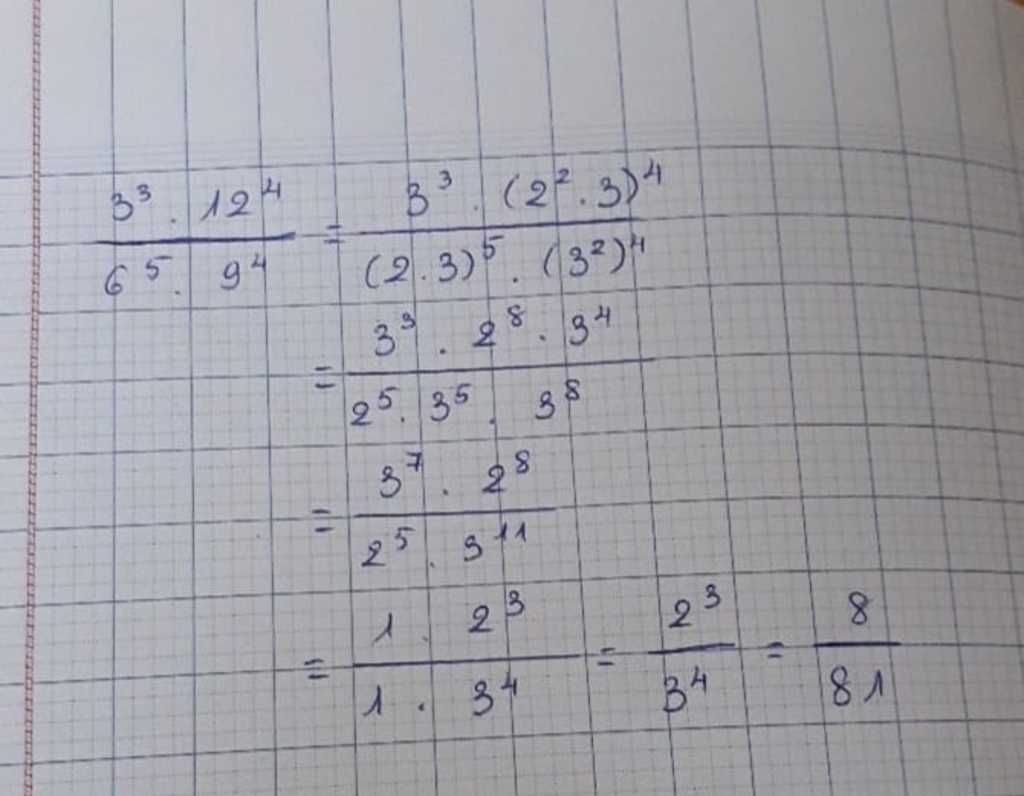 3³ . 12⁴ / 6⁵ . 9⁴ = 3³ . (2² . 3)⁴ / (2 . 3)⁵ . (3²)⁴
= 3³ . 2⁸ . 3⁴ / 2⁵ . 3⁵ . 3⁸
= 3⁷ . 2⁸ / 2⁵ . 3¹¹
= 1 . 2³ / 1 . 3⁴ = 2³ / 3⁴ = 8 / 81